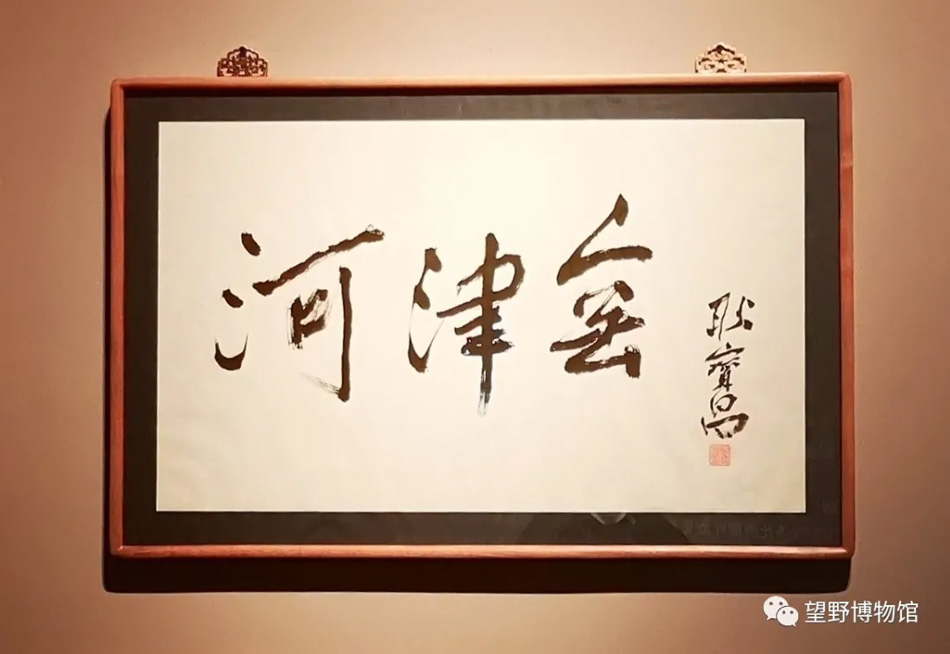 河津窑
耿寶昌
望野博物馆